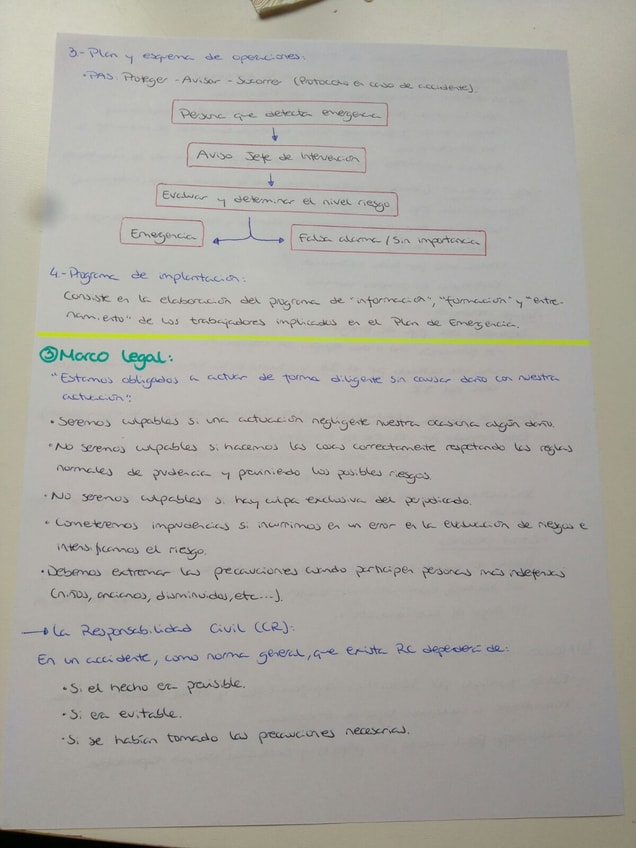 3.- Plan y esquema de operaciones:
• PAS: Proteger - Avisar - Socorrer (Protocolo en caso de accidente).
Persona que detecta emergencia
Aviso Jefe de Intervención
Evaluar y determinar el nivel riesgo
Emergencia
Falsa alarma / Sin importancia
4.- Programa de implantación:
Consiste en la elaboración del programa de "información", "formación" y "entre-
namiento" de los trabajadores implicados en el Plan de Emergencia.
③ Marco legal:
"Estamos obligados a actuar de forma diligente sin causar daño con nuestra
actuación":
• Seremos culpables si una actuación negligente nuestra ocasiona algún daño.
• No seremos culpables si hacemos las cosas correctamente respetando las reglas
normales de prudencia y previniendo los posibles riesgos.
• No seremos culpables si hay culpa exclusiva del perjudicado.
• Cometeremos imprudencias si incurrimos en un error en la evaluación de riesgos e
intensificamos el riesgo.
• Debemos extremar las precauciones cuando participen personas más indefensas
(niños, ancianos, disminuidos, etc...).
→ La Responsabilidad Civil (CR):
En un accidente, como norma general, que exista RC dependerá de:
• Si el hecho era previsible.
• Si era evitable.
• Si se habían tomado las precauciones necesarias.